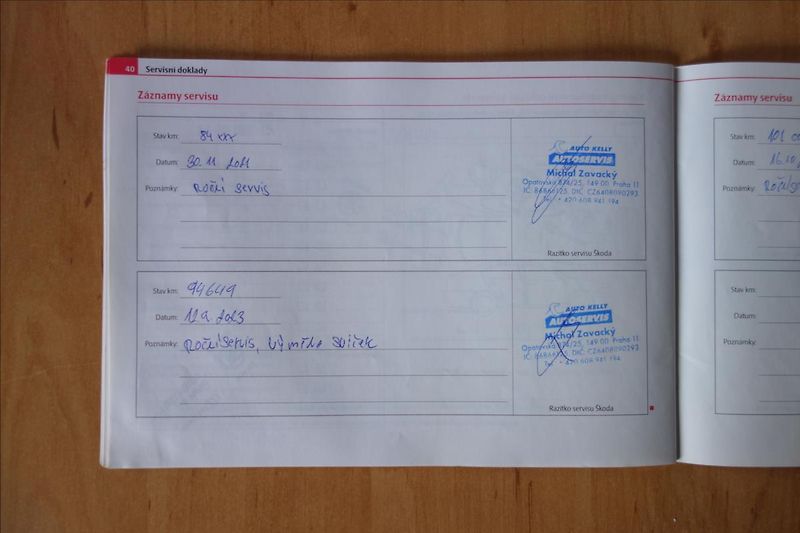 40 Servisní doklady
Záznamy servisu
Stav km: 84 xxx
Datum: 30.11.2021
Poznámky: Roční servis
AUTO KELLY
AUTOSERVIS
Michal Zavacký
Opatovská 874/25, 149 00 Praha 11
IČ: 86866125, DIČ: CZ6408090293
Tel.: +420 608 941 194
Razítko servisu Škoda
Stav km: 94649
Datum: 12.9.2023
Poznámky: Roční servis, výměna svíček
AUTO KELLY
AUTOSERVIS
Michal Zavacký
Opatovská 874/25, 149 00 Praha 11
IČ: 86866125, DIČ: CZ6408090293
Tel.: +420 608 941 194
Razítko servisu Škoda
Záznamy servisu
Stav km: 101
Datum: 16.10.
Poznámky:
Stav km:
Datum:
Poznámky: